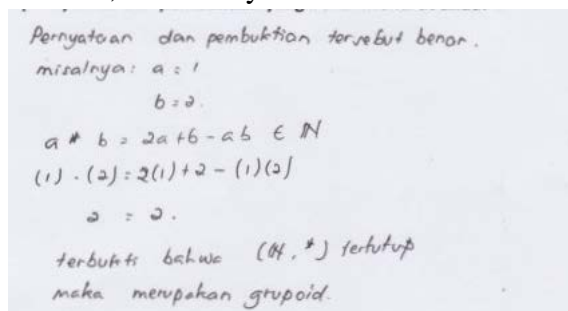 Pernyataan dan pembuktian tersebut benar.
misalnya: a = 1
b = 2.
a * b = 2a + b - ab ∈ N
(1) . (2) = 2(1) + 2 - (1)(2)
2 = 2.
terbukti bahwa (N, *) tertutup
maka merupakan grupoid.